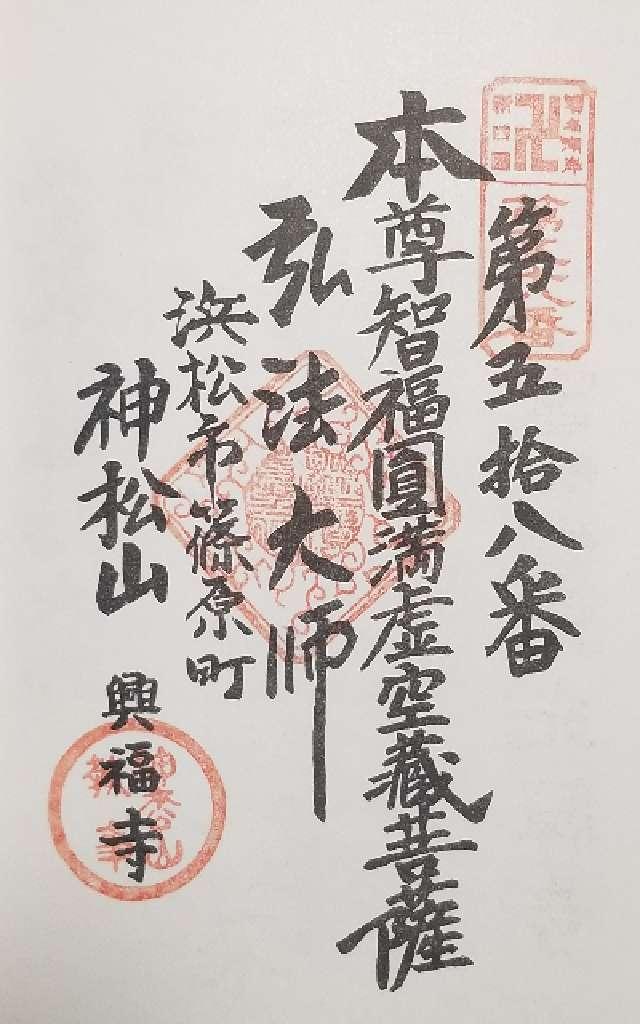 第五拾八番
本尊智福圓満虚空藏菩薩
弘法大師
浜松市篠原町
神松山
興福寺